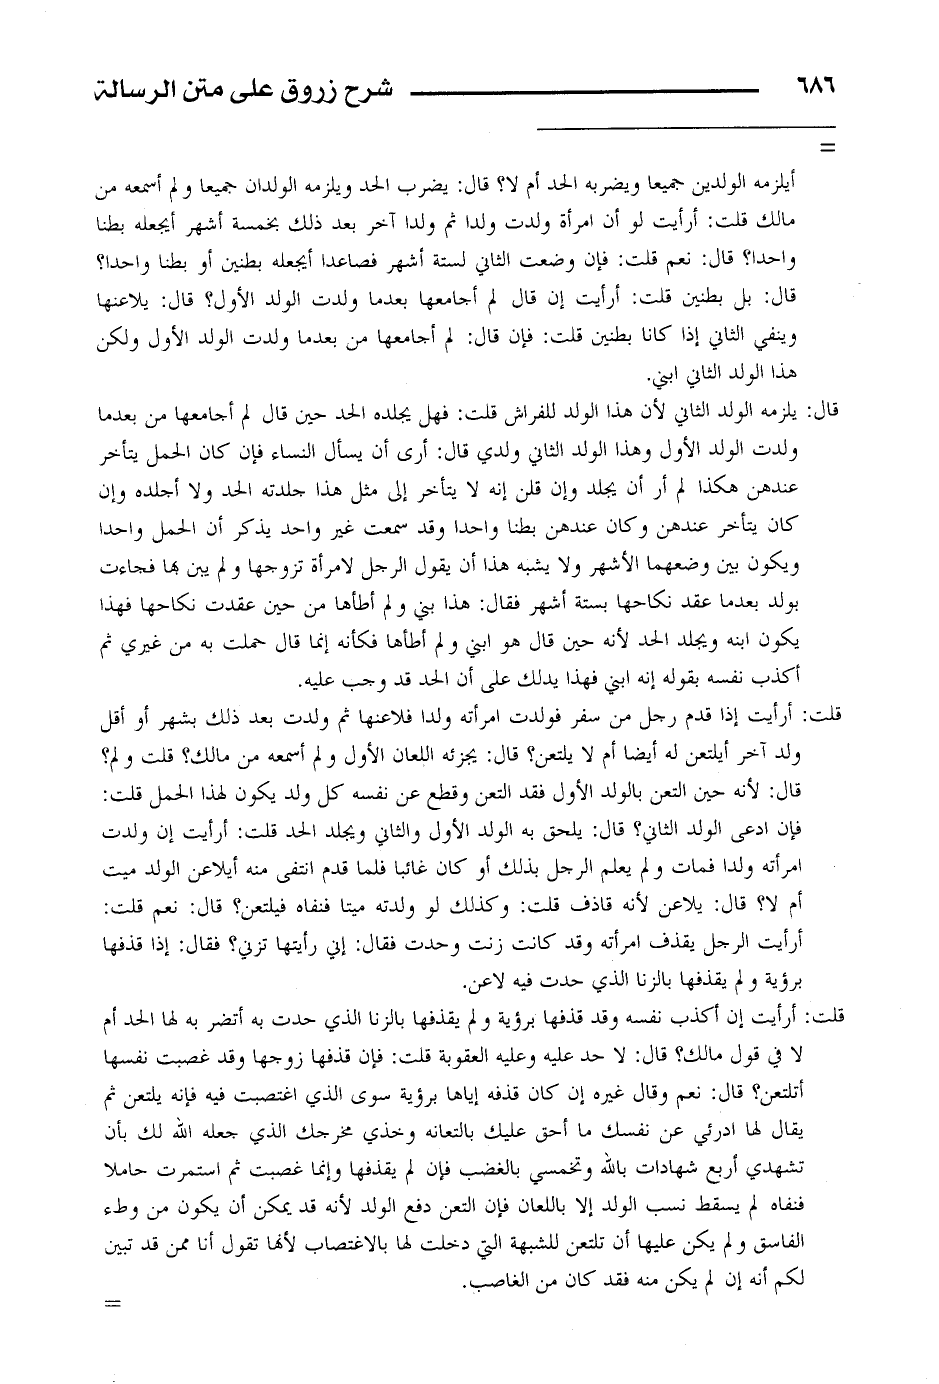 ٦٨٦ شرح زروق على متن الرسالة
=
أيلزمه الولدين جميعا ويضربه الحد أم لا؟ قال: يضرب الحد ويلزمه الولدان جميعا و لم أسمعه من
مالك قلت: أرأيت لو أن امرأة ولدت ولدا ثم ولدا آخر بعد ذلك بخمسة أشهر أيجعله بطنا
واحدا؟ قال: نعم قلت: فإن وضعت الثاني لستة أشهر فصاعدا أيجعله بطنين أو بطنا واحدا؟
قال: بل بطنين قلت: أرأيت إن قال لم أجامعها بعدما ولدت الولد الأول؟ قال: يلاعنها
وينفي الثاني إذا كانا بطنين قلت: فإن قال: لم أجامعها من بعدما ولدت الولد الأول ولكن
هذا الولد الثاني ابني.
قال: يلزمه الولد الثاني لأن هذا الولد للفراش قلت: فهل يجلده الحد حين قال لم أجامعها من بعدما
ولدت الولد الأول وهذا الولد الثاني ولدي قال: أرى أن يسأل النساء فإن كان الحمل يتأخر
عندهن هكذا لم أر أن يجلد وإن قلن إنه لا يتأخر إلى مثل هذا جلدته الحد ولا أجلده وإن
كان يتأخر عندهن وكان عندهن بطنا واحدا وقد سمعت غير واحد يذكر أن الحمل واحدا
ويكون بين وضعهما الأشهر ولا يشبه هذا أن يقول الرجل لامرأة تزوجها و لم يبن بها فجاءت
بولد بعدما عقد نكاحها بستة أشهر فقال: هذا بني و لم أطأها من حين عقدت نكاحها فهذا
يكون ابنه ويجلد الحد لأنه حين قال هو ابني و لم أطأها فكأنه إنما قال حملت به من غيري ثم
أكذب نفسه بقوله إنه ابني فهذا يدلك على أن الحد قد وجب عليه.
قلت: أرأيت إذا قدم رجل من سفر فولدت امرأته ولدا فلاعنها ثم ولدت بعد ذلك بشهر أو أقل
ولد آخر أيلتعن له أيضا أم لا يلتعن؟ قال: يجزئه اللعان الأول و لم أسمعه من مالك؟ قلت و لم؟
قال: لأنه حين التعن بالولد الأول فقد التعن وقطع عن نفسه كل ولد يكون لهذا الحمل قلت:
فإن ادعى الولد الثاني؟ قال: يلحق به الولد الأول والثاني ويجلد الحد قلت: أرأيت إن ولدت
امرأته ولدا فمات و لم يعلم الرجل بذلك أو كان غائبا فلما قدم انتفى منه أيلاعن الولد ميت
أم لا؟ قال: يلاعن لأنه قاذف قلت: وكذلك لو ولدته ميتا فنفاه فيلتعن؟ قال: نعم قلت:
أرأيت الرجل يقذف امرأته وقد كانت زنت وحدت فقال: إني رأيتها تزني؟ فقال: إذا قذفها
برؤية و لم يقذفها بالزنا الذي حدت فيه لاعن.
قلت: أرأيت إن أكذب نفسه وقد قذفها برؤية و لم يقذفها بالزنا الذي حدت به أتضر به لها الحد أم
لا في قول مالك؟ قال: لا حد عليه وعليه العقوبة قلت: فإن قذفها زوجها وقد غصبت نفسها
أتلتعن؟ قال: نعم وقال غيره إن كان قذفه إياها برؤية سوى الذي اغتصبت فيه فإنه يلتعن ثم
يقال لها ادرئي عن نفسك ما أحق عليك بالتعانه وخذي مخرجك الذي جعله الله لك بأن
تشهدي أربع شهادات بالله وتخمسي بالغضب فإن لم يقذفها وإنما غصبت ثم استمرت حاملا
فنفاه لم يسقط نسب الولد إلا باللعان فإن التعن دفع الولد لأنه قد يمكن أن يكون من وطء
الفاسق و لم يكن عليها أن تلتعن للشبهة التي دخلت لها بالاغتصاب لأنها تقول أنا ممن قد تبين
لكم أنه إن لم يكن منه فقد كان من الغاصب.
=